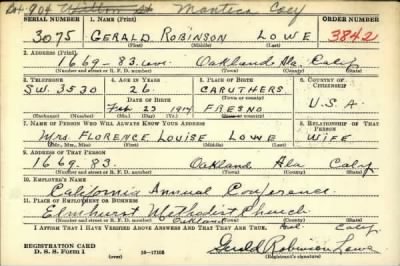 904 Manteca
SERIAL NUMBER 1. NAME (Print) ORDER NUMBER
3075 GERALD ROBINSON LOWE 3842
(First) (Middle) (Last)
2. ADDRESS (Print)
1669-83. ave. Oakland Ala. Calif
(Number and street or R. F. D. number) (Town) (County) (State)
3. TELEPHONE 4. AGE IN YEARS 5. PLACE OF BIRTH 6. COUNTRY OF CITIZENSHIP
SW. 3530 26. CARUTHERS
(Town or county)
DATE OF BIRTH
Feb 23 1914 FRESNO U.S.A.
(Exchange) (Number) (Mo.) (Day) (Yr.) (State or country)
7. NAME OF PERSON WHO WILL ALWAYS KNOW YOUR ADDRESS 8. RELATIONSHIP OF THAT PERSON
Mrs. FLORENCE LOUISE LOWE WIFE
(Mr., Mrs., Miss) (First) (Middle) (Last)
9. ADDRESS OF THAT PERSON
1669. 83. Oakland Ala Calif
(Number and street or R. F. D. number) (Town) (County) (State)
10. EMPLOYER'S NAME
California Annual Conference.
11. PLACE OF EMPLOYMENT OR BUSINESS
Elmhurst Methodist Church
Oakland Calif
(Number and street or R. F. D. number) (Town) (County) (State)
I AFFIRM THAT I HAVE VERIFIED ABOVE ANSWERS AND THAT THEY ARE TRUE.
REGISTRATION CARD
D. S. S. Form 1 16-17105 Gerald Robinson Lowe
(Registrant's signature)